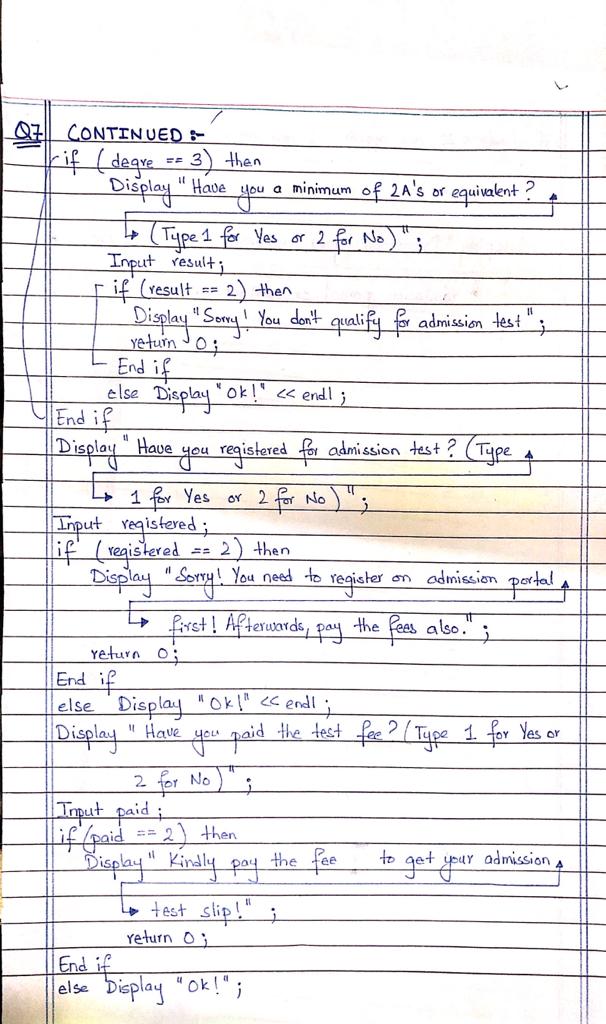 Q7 CONTINUED :-
if ( degre == 3) then
Display " Have you a minimum of 2A's or equivalent ?
(Type 1 for Yes or 2 for No) " ;
Input result;
if (result == 2) then
Display "Sorry! You don't qualify for admission test " ;
return 0 ;
End if
else Display " Ok! " << endl ;
End if
Display " Have you registered for admission test ? (Type
1 for Yes or 2 for No ) " ;
Input registered ;
if ( registered == 2 ) then
Display "Sorry! You need to register on admission portal
first! Afterwards, pay the fees also." ;
return 0;
End if
else Display " Ok! " << endl ;
Display " Have you paid the test fee ? ( Type 1 for Yes or
2 for No ) " ;
Input paid ;
if (paid == 2 ) then
Display " Kindly pay the fee to get your admission
test slip! " ;
return 0 ;
End if
else Display "Ok! " ;